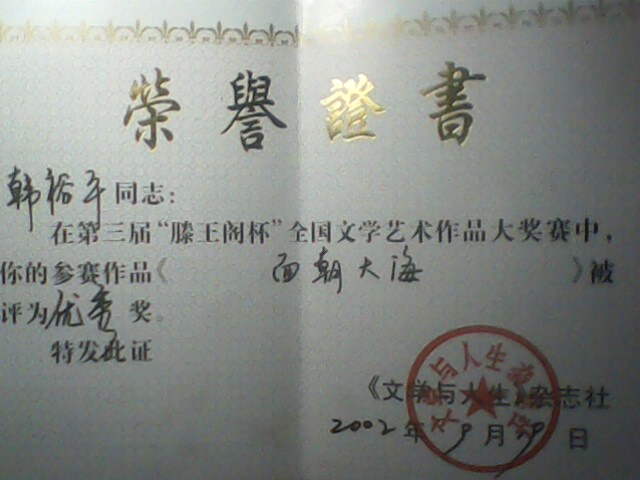 榮譽證書
韩裕平同志：
在第三届“滕王阁杯”全国文学艺术作品大奖赛中，
你的参赛作品《面朝大海》被
评为优秀奖。
特发此证
《文学与人生》杂志社
2002年9月29日